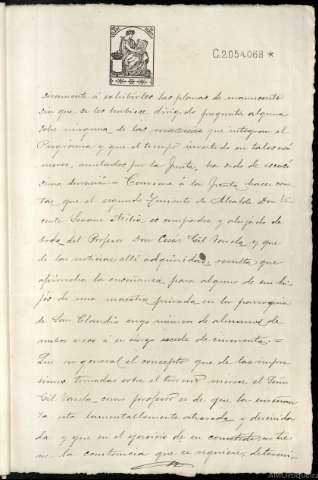 C.2.054.068 *
sivamente á exhibirles las planas de manuscrito
sin que se les hubiese dirigido pregunta alguna
sobre ninguna de las materias que integran el
Programa y que el tiempo invertido en tales exá
menes, anulados por la Junta, ha sido de
Conviene á la Junta hacer cons
tar que el segundo Teniente de Alcalde Don Vi
cente es compadre y ahijado de
boda del Profesor Don César Gil Varela, y que
de las noticias allí adquiridas, resulta, que
aprovecha la enseñanza para alguno de sus hi
jos de una maestra privada en la parroquia
de San Claudio cuyo número de alumnos de
ambos sexos á su cargo excede de cincuenta; =
Que en general el concepto que de las impre
siones tomadas sobre el terreno merece el Señor
Gil Varela como profesor es de que la enseñan
za está lamentablemente atrasada y descuida
da y que en el ejercicio de su cometido no tie
ne la constancia que se requiere,